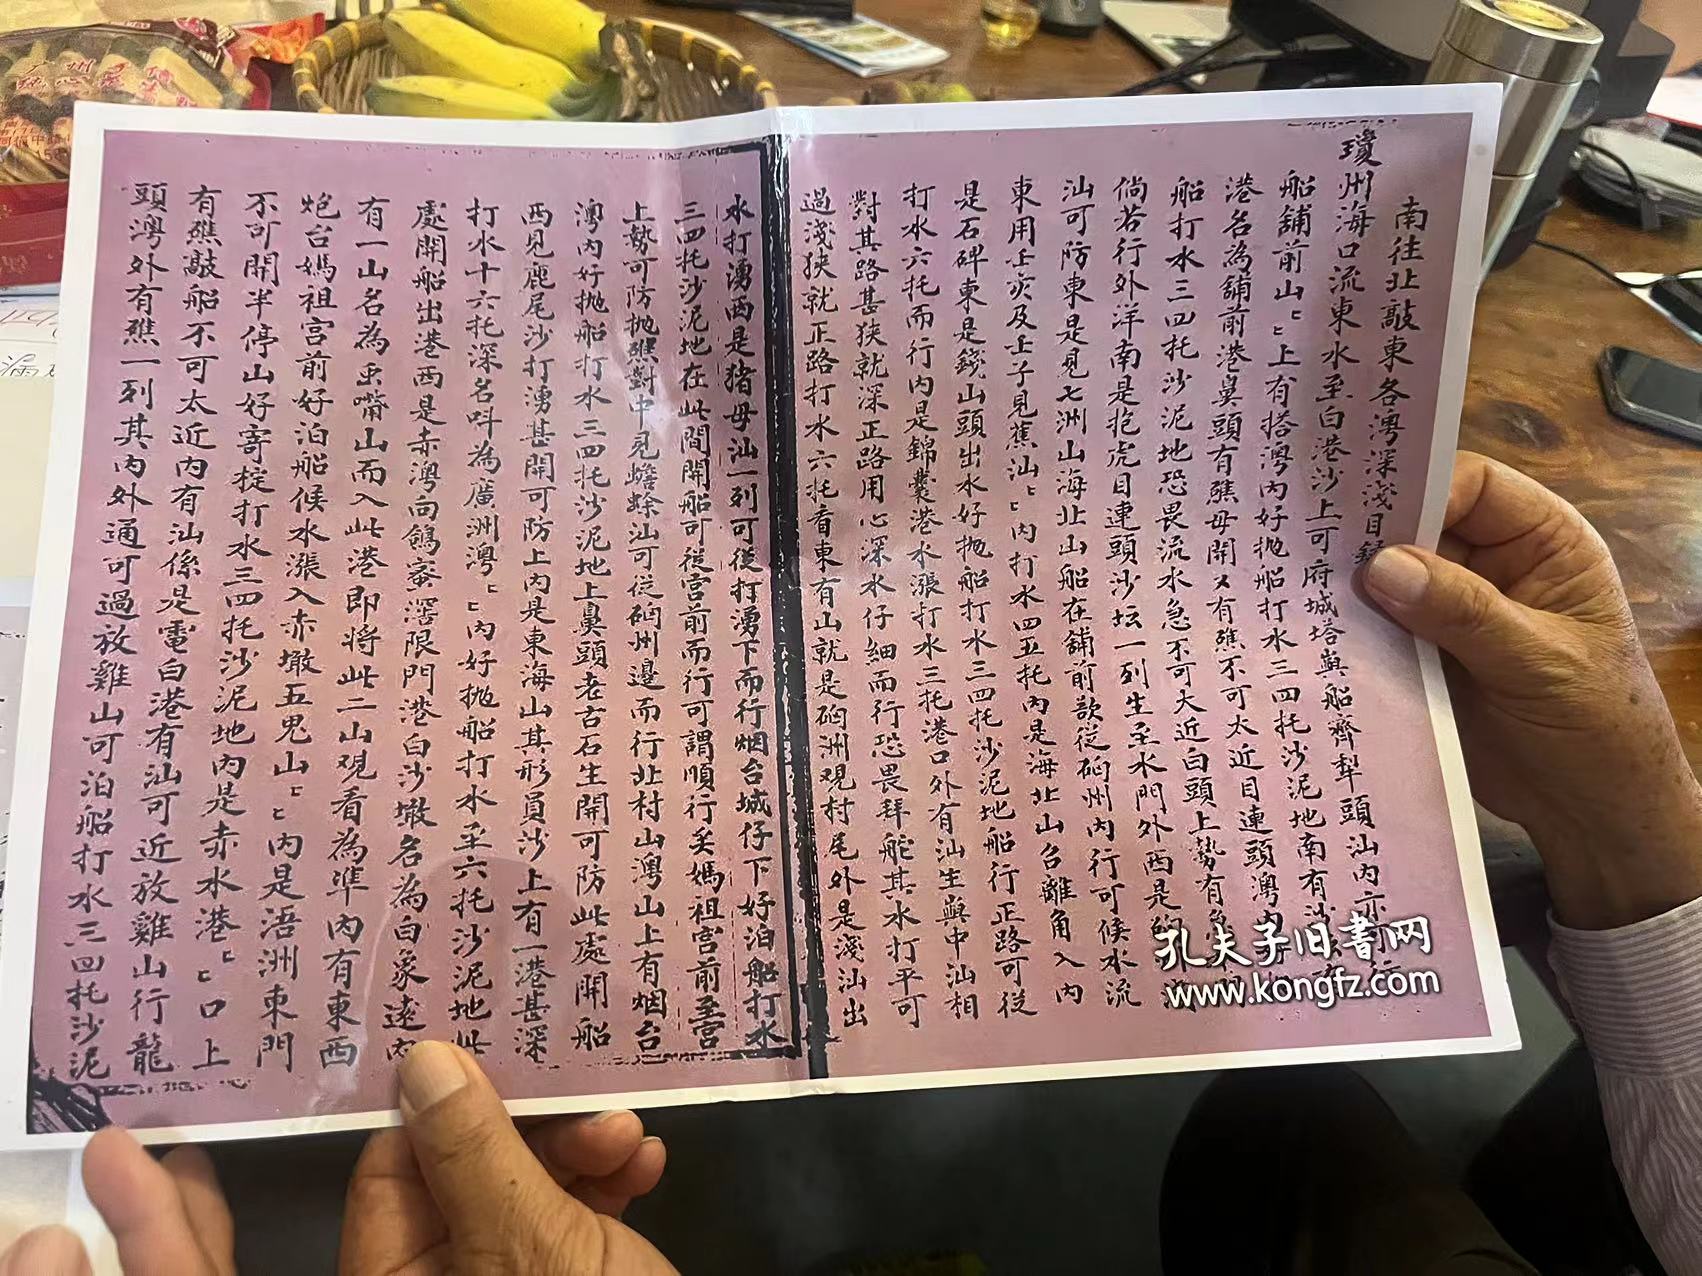 南往北敲東各灣深淺目錄
瓊州海口流東水至白港沙上可府城塔與船齊犁頭汕內亦可行
船舖前山〻上有塔灣內好拋船打水三四托沙泥地南有沙
港名為舖前港鼻頭有礁母開又有礁不可太近目連頭灣內
船打水三四托沙泥地恐畏流水急不可大近白頭上勢有
倘若行外洋南是抱虎目連頭沙坛一列生至水門外西是
汕可防東是見七洲山海北山船在舖前歆從硇州內行可候水流
東用壬亥及壬子見蕉汕〻內打水四五托內是海北山台離角入內
是石碑東是錢山頭出水好拋船打水三四托沙泥地船行正路可從
打水六托而行內是錦囊港水漲打水三托港口外有汕生與中汕相
對其路甚狹就深正路用心深水仔細而行恐畏拜舵其水打平可
過淺狹就正路打水六托看東有山就是硇洲觀村尾外是淺汕出
水打湧西是猪母汕一列可從打湧下而行烟台城仔下好泊船打水
三四托沙泥地在此間開船可從宮前而行可謂順行矣媽祖宮前至宮
上勢可防拋礁對中見蟾蜍汕可從硇州邊而行北村山灣山上有烟台
澳內好拋船打水三四托沙泥地上鼻頭老古石生開可防此處開船
西見鹿尾沙打湧甚開可防上內是東海山其形員沙上有一港甚深
打水十六托深名呌為廣洲灣〻內好拋船打水至六托沙泥地此
處開船出港西是赤灣向鴿寮滘限門港白沙墩名為白家遠內
有一山名為虫嘴山而入此港即將此二山觀看為準內有東西
炮台媽祖宮前好泊船候水漲入赤墩五鬼山〻內是浯洲東門
不可開半停山好寄椗打水三四托沙泥地內是赤水港〻口上
有礁敲船不可太近內有汕係是電白港有汕可近放雞山行龍
頭灣外有礁一列其內外通可過放雞山可泊船打水三四托沙泥
孔夫子旧書网
www.kongfz.com